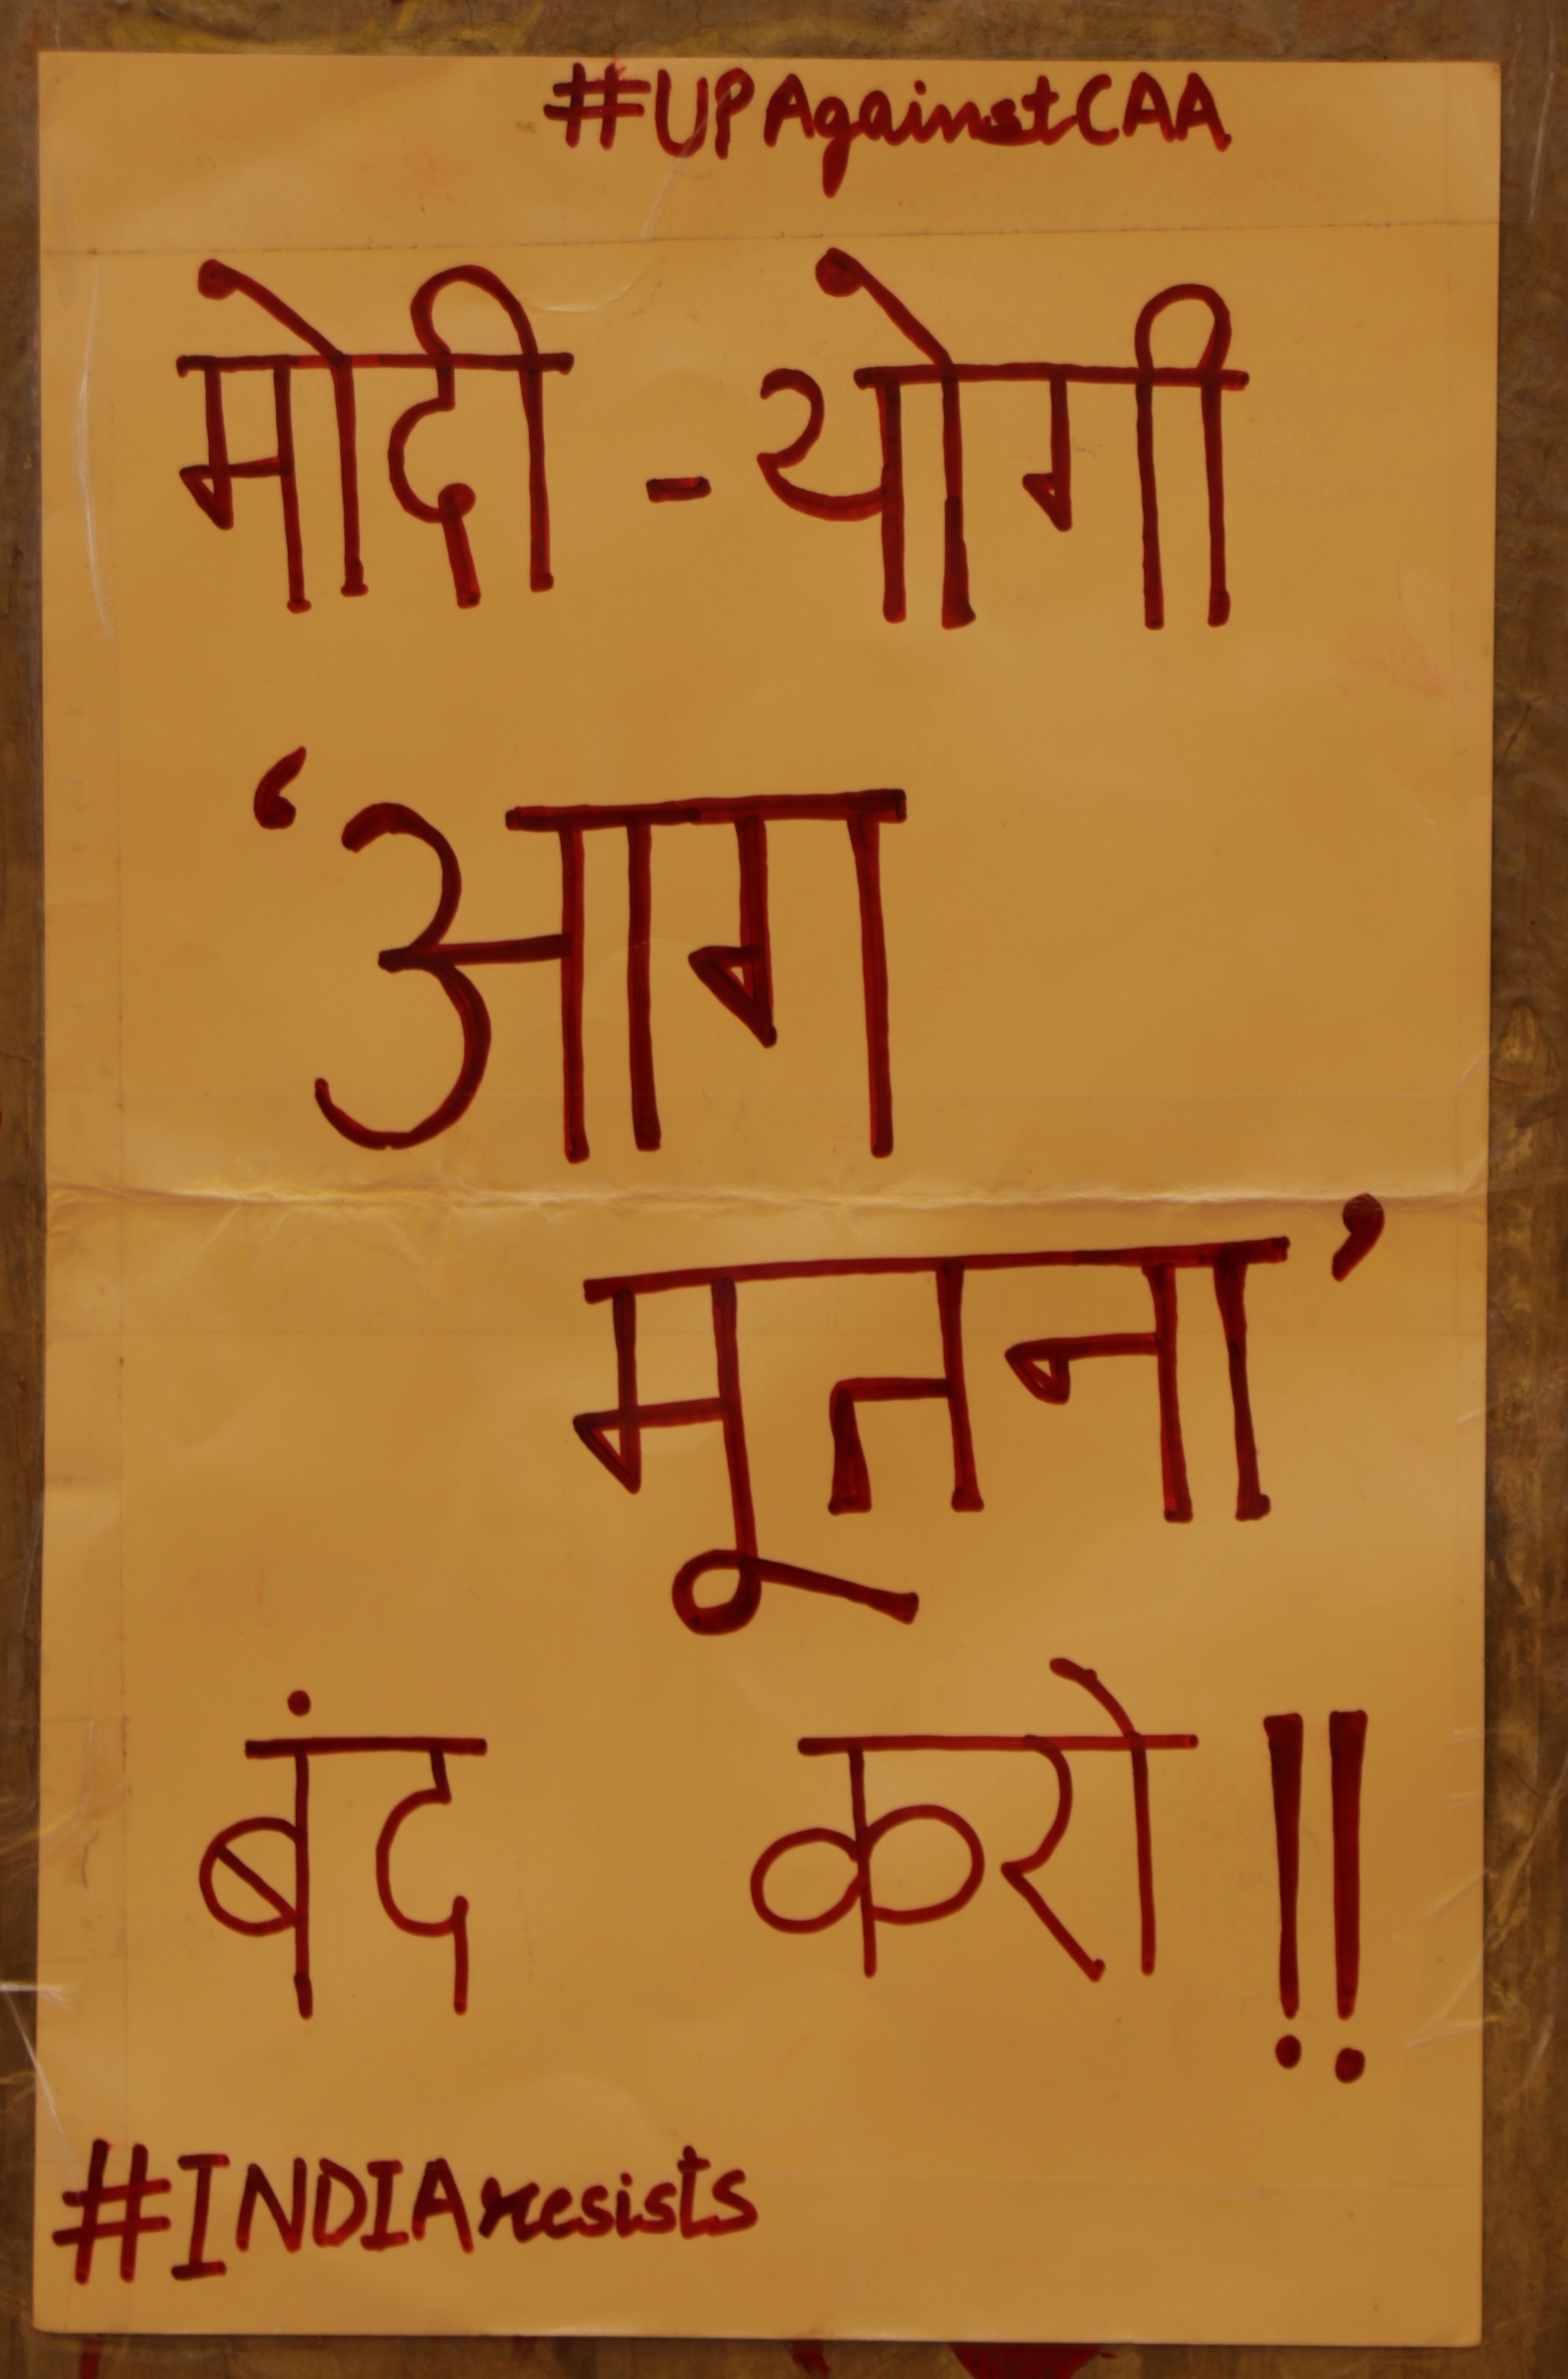 #UPAgainstCAA
मोदी - योगी
‘आग
मूतना’
बंद करो!!
#INDIAresists